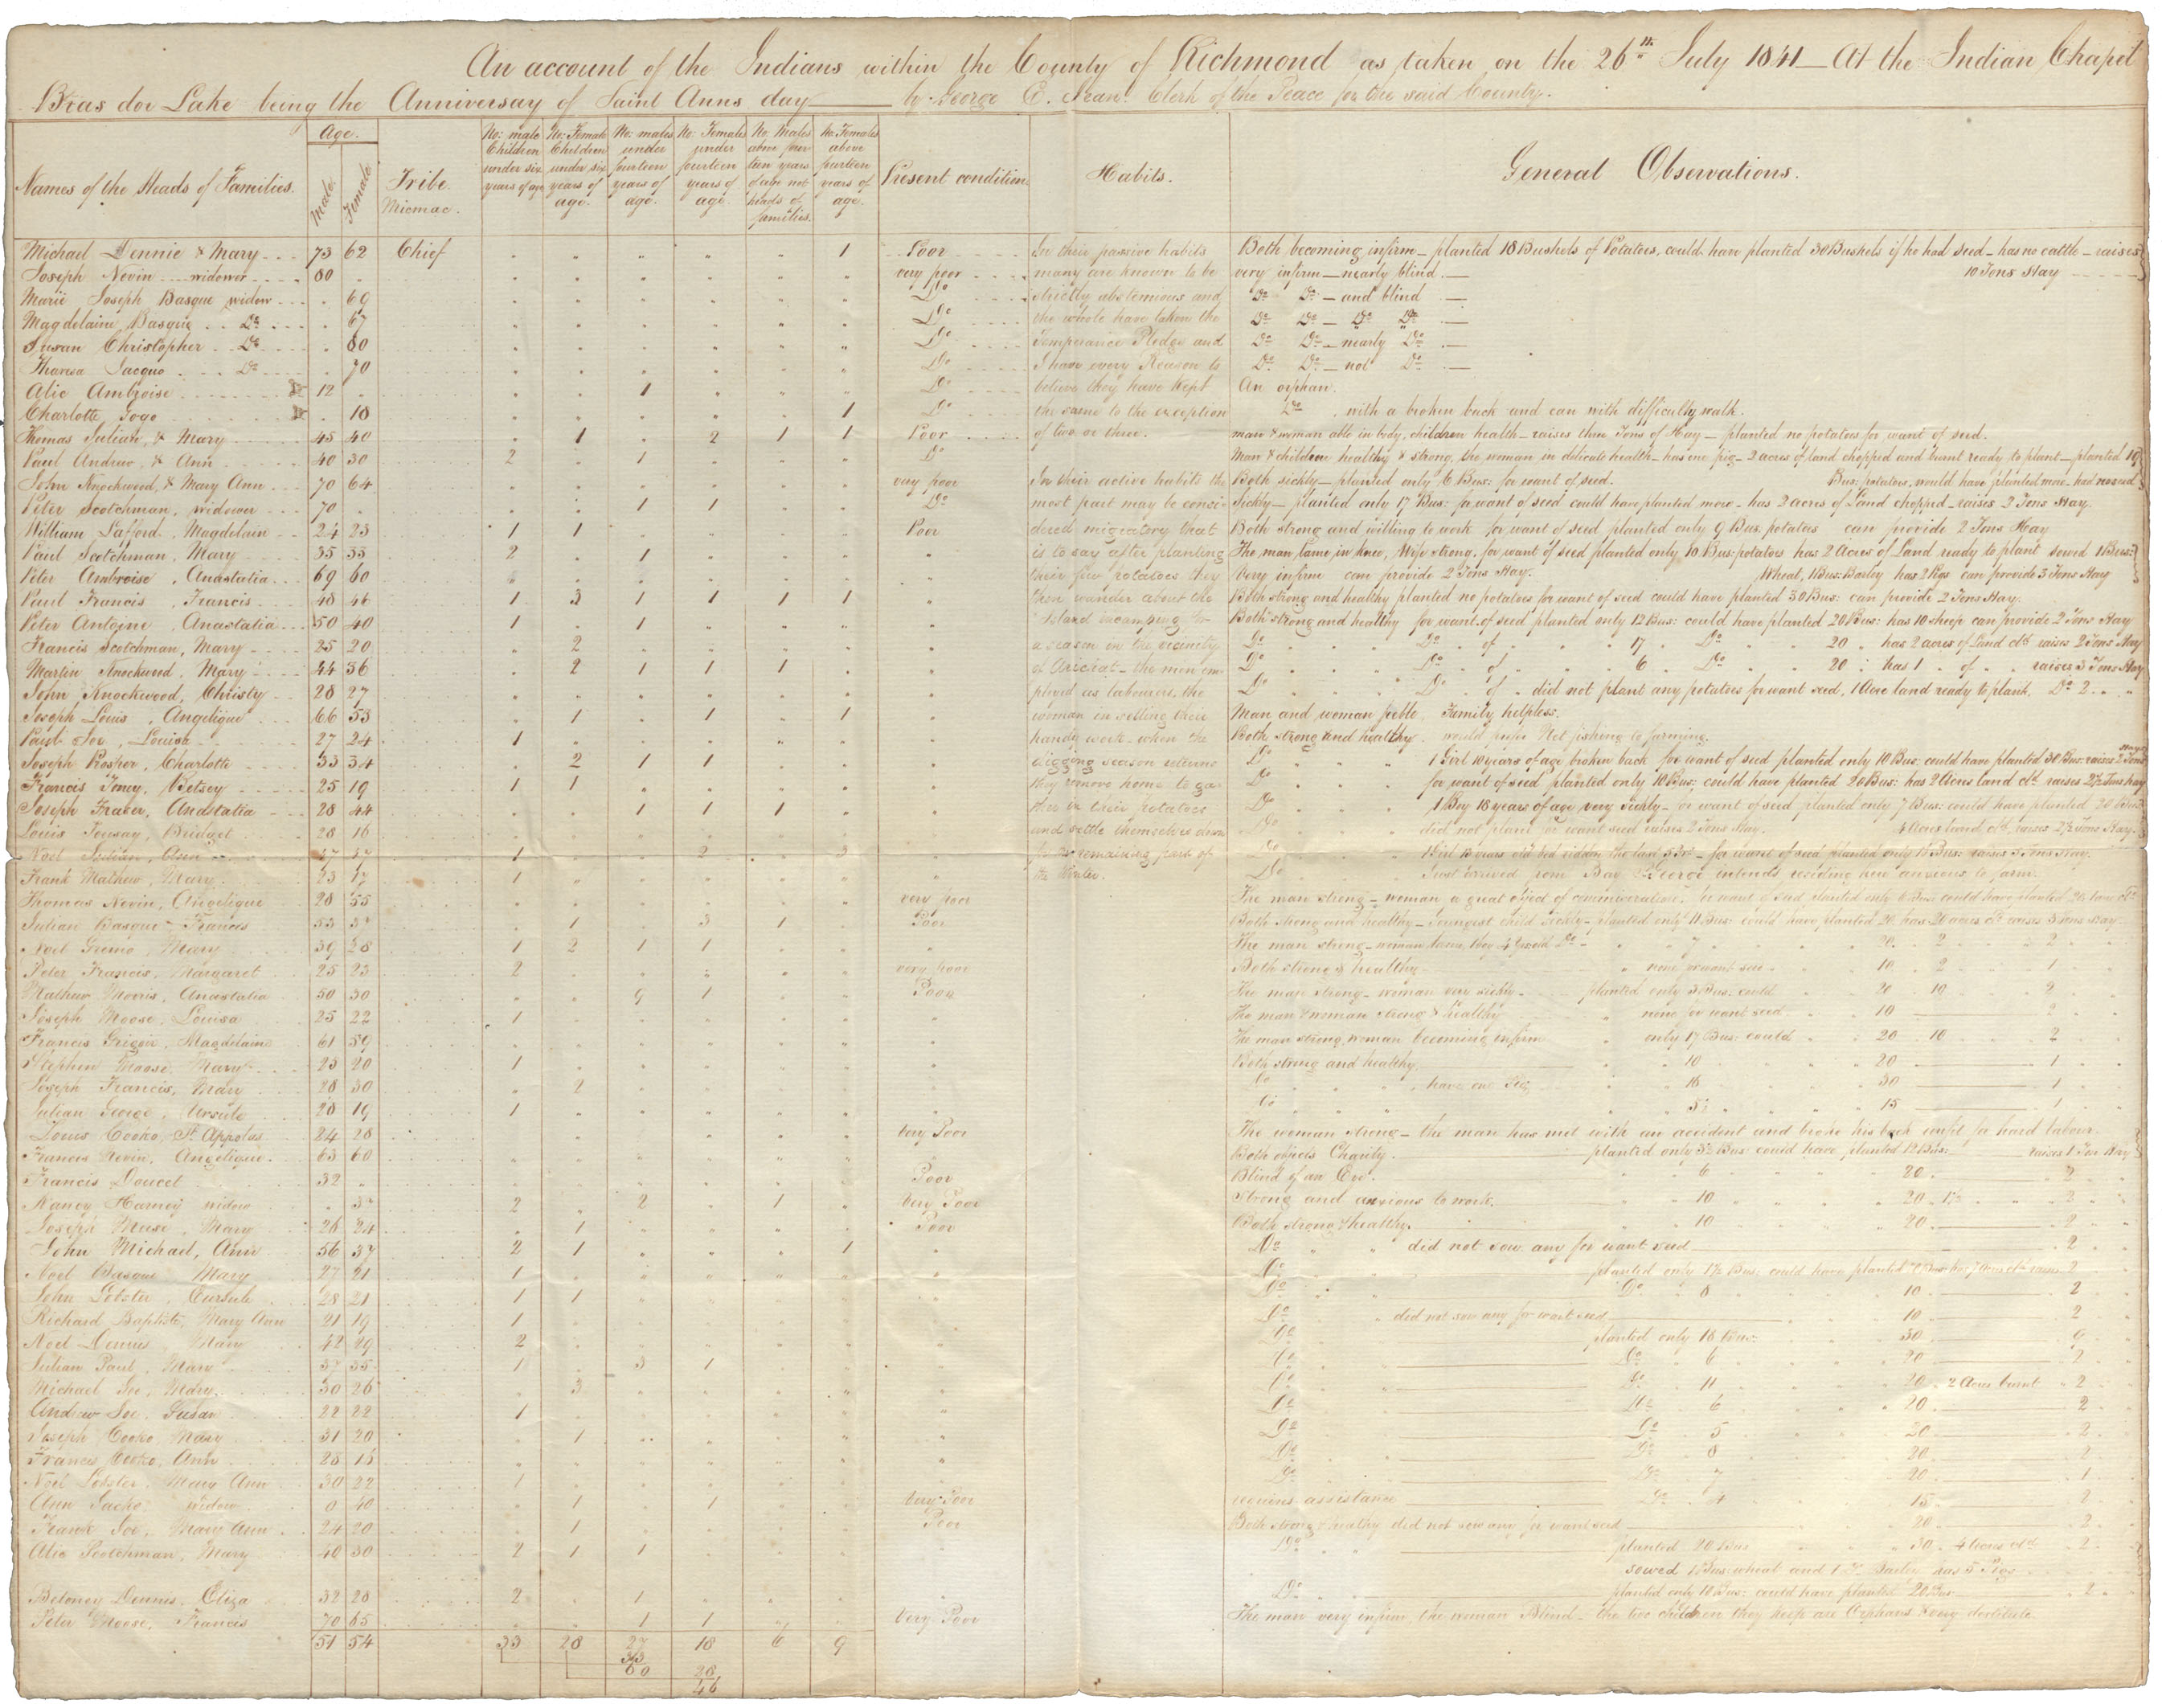 An account of the Indians within the County of Richmond as taken on the 26th July 1841 — At the Indian Chapel
Bras dor Lake being the Anniversay of Saint Anns day — by George E. Clerk of the Peace for the said County.
Names of the Heads of Families.
Age.
Male.
Female
Tribe
Micmac.
No: male Children under six years of age
No: Female Children under six years of age.
No: males under fourteen years of age.
No. Females under fourteen years of age.
No. Males above four teen years of age not heads of families.
No. Females above fourteen years of age.
Present condition
Habits.
General Observations.
Michael Dennie & Mary 73 62 Chief 1 Poor Both becoming infirm — planted 18 Bushels of Potatoes, could have planted 30 Bushels if he had seed — has no cattle — raises
10 Tons Hay
Joseph Nevin widower 80 very poor very infirm — nearly blind
Marie Joseph Basque widow 69 Do Do Do — and blind
Magdelaine Basque Do 67 Do Do Do — Do Do
Susan Christopher Do 80 Do Do Do — nearly Do
Theresa Jacquo Do 70 Do Do Do — not Do
Alic Ambroise 12 1 Do An orphan.
Charlotte Gogo 18 1 Do Do, with a broken back and can with difficulty walk.
Thomas Julian, & Mary 45 40 1 2 1 1 Poor man & woman able in body, children health — raises three Tons of Hay — planted no potatoes for want of seed.
Paul Andrew, & Ann 40 30 2 1 Do Man & children healthy & strong, the woman in delicate health — has one pig — 2 acres of land chopped and burnt ready to plant — planted 19
Bus: potatoes, would have planted more had no seed
John Knockwood, & Mary Ann 70 64 very poor Both sickly — planted only 6 Bus: for want of seed.
Peter Scotchman, widower 70 1 1 Do Sickly — planted only 17 Bus: for want of seed could have planted more — has 2 acres of Land chopped — raises 2 Tons Hay.
William Lafford, Magdelain 24 23 1 1 Poor Both strong and willing to work for want of seed planted only 9 Bus. potatoes can provide 2 Tons Hay
Paul Scotchman, Mary 35 33 2 1 The man lame in knee, Wife strong, for want of seed planted only 10 Bus: potatoes has 2 Acres of Land ready to plant sowed 1 Bus:
Wheat, 1 Bus: Barley has 2 Pigs can provide 3 Tons Hay
Peter Ambroise, Anastatia 69 60 Very infirm can provide 2 Tons Hay.
Paul Francis, Francis 48 46 1 3 1 1 1 1 Both strong and healthy planted no potatoes for want of seed could have planted 30 Bus: can provide 2 Tons Hay.
Peter Antoine, Anastatia 50 40 1 1 Both strong and healthy for want of seed planted only 12 Bus: could have planted 20 Bus: has 10 sheep can provide 2 Tons Hay
Francis Scotchman, Mary 25 20 2 Do Do of 17 Do 20 has 2 acres of Land cld raises 2 Tons Hay
Martin Knockwood, Mary 44 36 2 1 1 1 Do Do of 6 Do 20 has 1 of raises 3 Tons Hay
John Knockwood, Christy 28 27 Do Do of did not plant any potatoes for want seed, 1 Acre land ready to plant, Do 2
Joseph Louis, Angelique 66 53 1 1 1 Man and woman feeble, Family helpless.
Paul Joe, Louisa 27 24 1 Both strong and healthy would prefer Net fishing to farming.
Joseph Prosper, Charlotte 33 34 2 1 1 Do 1 Girl 10 years of age broken back for want of seed planted only 10 Bus: could have planted 30 Bus: raises 2 Tons Hay
Francis Toney, Betsey 25 19 1 1 Do for want of seed planted only 10 Bus: could have planted 20 Bus: has 2 Acres land cld raises 2½ Tons hay
Joseph Fraser, Anastatia 28 44 1 1 1 Do 1 Boy 18 years of age very sickly — for want of seed planted only 7 Bus: could have planted 20 Bus:
4 Acres land cld raises 2½ Tons Hay.
Louis Tousay, Bridget 28 16 did not plant for want seed raises 2 Tons Hay.
Noel Julian, Ann 47 37 1 2 3 Do 1 Girl 13 years old bed ridden the last — for want of seed planted only Bus: raises 3 Tons Hay
Frank Mathew, Mary 23 17 1 Do Just arrived from Bay St. George intends residing here anxious to farm
Thomas Nevin, Angelique 28 55 very poor The man strong — woman a great object of commiseration, for want of seed planted only 6 Bus could have planted 20
Julian Basque — Frances 53 1 3 1 Poor Both strong and healthy — youngest child sickly — planted only 11 Bus: could have planted 20 has 20 acres cld raises 3 tons Hay
Noel Gremo, Mary 39 28 1 2 1 1 The man strong — woman lame, boy 4 years old Do 7 20 2 2
Peter Francis, Margaret 25 23 2 very poor Both strong & healthy none for want seed 10 2 1
Mathew Morris, Anastatia 50 30 9 1 Poor The man strong — woman very sickly — planted only 3 Bus: could 20 10 2
Joseph Moose, Louisa 25 22 1 The man & woman strong & healthy none for want seed 10 2
Francis Grigoir, Magdelaine 61 59 The man strong woman becoming infirm only 17 Bus: could 20 10 2
Stephen Moose, Mary 25 20 1 Both strong and healthy 10 20 1
Joseph Francis, Mary 28 30 2 Do have one Pig 16 30 1
Julian George, Ursule 28 19 1 Do 5½ 15 1
Louis Cooko, St. Appolas 24 28 Very Poor The woman strong — the man has met with an accident and broke his back unfit for hard labour
Francis Nevin, Angelique 63 60 Both objects Charity. planted only 3½ Bus: could have planted 12 Bus: raises 1 Ton Hay
Francis Doucet 32 Poor Blind of an Eye. 6 20 2
Nancy Harney widow 2 2 1 Very Poor Strong and anxious to work. 10 20 1½ 2
Joseph Muse, Mary 26 24 1 Poor Both strong & healthy. 10 20 2
John Michael, Ann 56 37 2 1 1 Do did not sow any for want seed 2
Noel Basque Mary 27 21 1 Do planted only 1½ Bus: could have planted 2
John Lobster, Cursule 28 21 1 1 Do Do 8 10 2
Richard Baptiste, Mary Ann 21 19 1 Do did not sow any for want seed 10 2
Noel Dennis, Mary 42 29 2 Do planted only 18 Bus: 30 9
Julian Paul, Mary 37 35 1 3 1 Do Do 6 20 2
Michael Joe, Mary 30 26 3 Do Do 11 20 2 Acres burnt 2
Andrew Joe, Susan 22 22 1 Do Do 6 20 2
Joseph Cooko, Mary 31 20 1 Do Do 5 20 2
Francis Cooko, Ann 25 18 Do Do 8 20 2
Noel Lobster, Mary Ann 30 22 1 Do Do 7 20 1
Ann Jacko widow 0 40 1 1 Very Poor requires assistance Do 4 15 2
Frank Joe, Mary Ann 24 20 1 Poor Both strong & healthy did not sow any for want seed 20 2
Alic Scotchman, Mary 40 30 2 1 1 Do planted 20 Bus 30 4 Acres cld 2
sowed 1 Bus: wheat and 1 Do Barley has 5 Pigs
Beloney Dennis, Eliza 32 28 2 1 Do planted only 10 Bus: could have planted 20 Bus: 2
Peter Moose, Francis 70 65 1 1 Very Poor The man very infirm the woman Blind — the two children they keep are Orphans & very destitute
51 54 33 28 27 18 6 9
33 28
60 46
In their passive habits
many are known to be
strictly abstemious and
the whole have taken the
Temperance Pledge and
I have every Reason to
believe they have kept
the same to the exception
of two or three.
In their active habits the
most part may be consi-
dered migratory that
is to say after planting
their few potatoes they
then wander about the
Island encamping for
a season in the vicinity
of Arichat — the men em-
ployed as labourers the
woman in selling their
handy work — when the
digging season returns
they remove home to ga-
ther in their potatoes
and settle themselves down
for the remaining part of
the Winter.